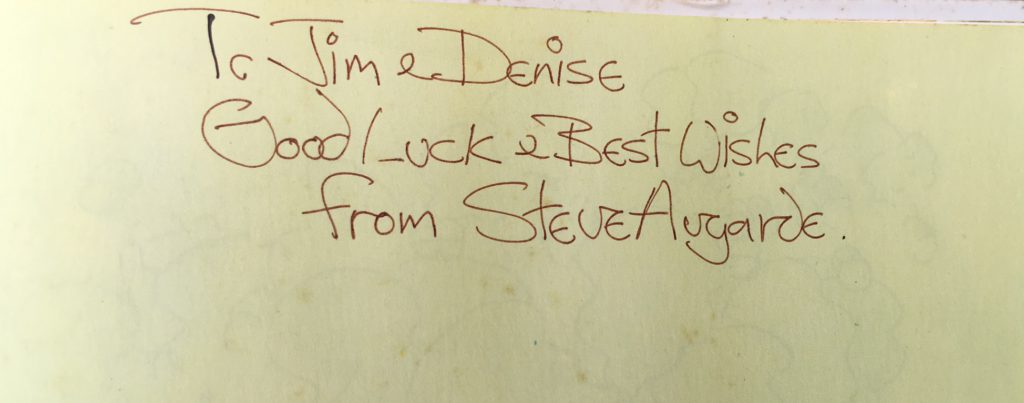 To Jim & Denise
Good Luck & Best Wishes
from Steve Augarde.